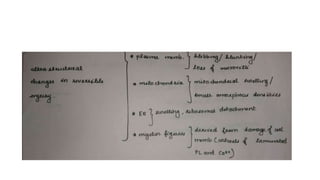 * plasma memb. } blebbing / blunting /
loss of microvilli
ultra structural
changes in reversible
injury
* mitochondria } mitochondrial swelling /
small amorphous densities
* ER } swelling, ribosomal detachment
* myelin figures } derived from damage of cell
memb ( of laminated
PL and Ca++)